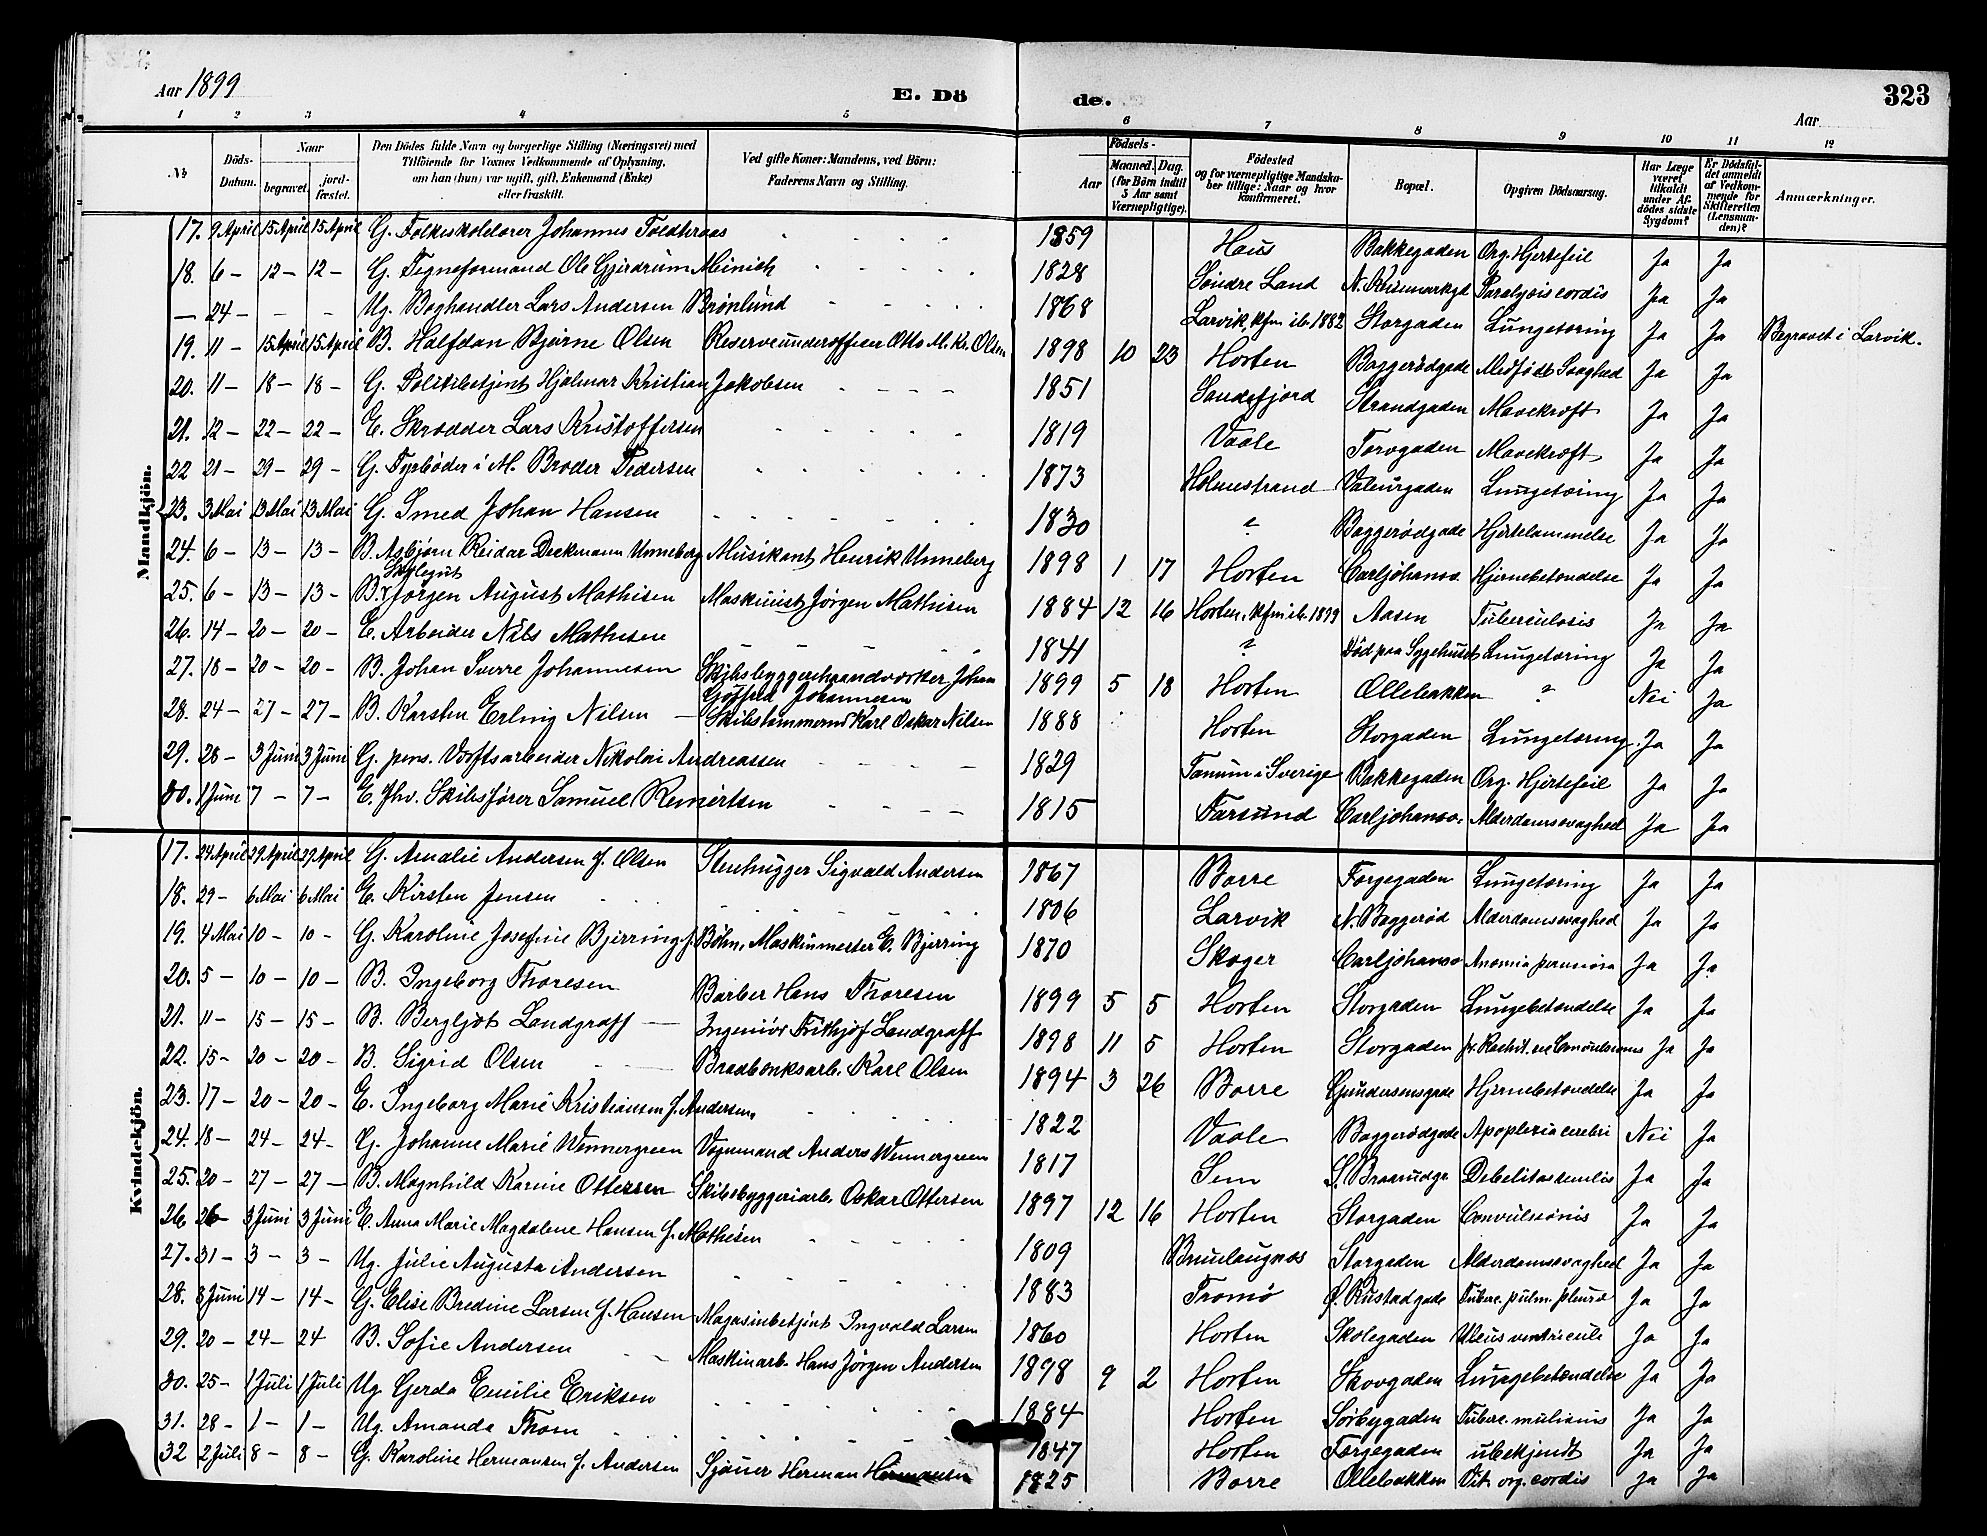 Aar 1899
E. Dö
de.
323
Aar
1 2 3 4 5 6 7 8 9 10 11 12
№ Döds-Datum. Naar begravet. jord-fæstet. Den Dödes fulde Navn og borgerlige Stilling (Næringsvei) med Tilföiende for Voxnes Vedkommende af Oplysning, om han (hun) var ugift, gift, Enkemand (Enke) eller fraskilt. Ved gifte Koner: Mandens, ved Börn: Faderens Navn og Stilling. Födsels- Aar Maaned. Dag. (for Börn indtil 5 Aar samt Værnepligtige). Födested og for værnepligtige Mandskaber tillige: Naar og hvor konfirmeret. Bopæl. Opgiven Dödsaarsag. Har Læge været tilkaldt under Afdödes sidste Sygdom? Er Dödsfaldet anmeldt af Vedkommende for Skifteretten (Lensmanden)? Anmærkninger.
Mandkjön.
17. 9 April 15 April 15 April G. Folkeskolelærer Johannes Toldteraas 1859 Haus Bakkegaden Org. Hjertefeil Ja Ja
18. 6 – 12 – 12 – G. Tegneformand Ole Gjerdrum Meinich 1828 Søndre Land Paralysis cordis Ja Ja
– 24 – – – Ug. Boghandler Lars Andersen Brønlund 1868 Larvik, Kfm. ib. 1882 Storgaden Lungetæring Ja Ja Begravet i Larvik.
19. 11 – 15 April 15 April B. Halfdan Bjarne Olsen Reserveunderofficer Otto M. Kr. Olsen 1898 10 23 Horten Baggerødgade Medfødt Svaghed Ja Ja
20. 11 – 18 – 18 – G. Politibetjent Hjalmar Kristian Jakobsen 1851 Sandefjord Strandgaden Mavekræft Ja Ja
21. 12 – 22 – 22 – E. Skrædder Lars Kristoffersen 1819 Vaale Torvgaden Mavekræft Ja Ja
22 21 – 29 – 29 – G. Fyrbøder i M. Broder Pedersen 1873 Holmestrand Valeurgaden Lungetæring Ja Ja
23. 3 Mai 13 Mai 13 Mai G. Smed Johan Hansen 1830 ? Baggerødgade Hjertelammelse Ja Ja
24. 6 – 13 – 13 – B. Asbjørn Reidar Deckmann Unneberg Musikant Henrik Unneberg 1898 1 17 Horten Carljohansv. Hjernebetændelse Ja Ja
25. 6 – 13 – 13 – B. Skolegut Jørgen August Mathisen Maskinist Jørgen Mathisen 1884 12 16 Horten, Kfm. ib. 1899 Aasen Tuberculosis Ja Ja
26. 14 – 20 – 20 – E. Arbeider Nils Mathisen 1841 ? Død paa Sygehuset Lungetæring Ja Ja
27. 18 – 20 – 20 – B. Johan Sverre Johannesen Skibsbyggerihaandværker Johan Gotfred Johannesen 1899 5 18 Horten Ollebakken ? Nei Ja
28. 24 – 27 – 27 – B. Karsten Erling Nilsen – Skibstømmermd Karl Oskar Nilsen 1888 Horten Storgaden Lungetæring Ja Ja
29. 28 – 3 Juni 3 Juni G. pens. Værftsarbeider Nikolai Andreassen 1829 Tanum i Sverige Bakkegaden Org. Hjertefeil Ja Ja
30. 1 Juni 7 – 7 – E. fhv. Skibsfører Samuel Reinertsen 1815 Farsund Carljohansv. Alderdomssvaghed Ja Ja
Kvindekjön.
17. 24 April 29 April 29 April G. Amalie Andersen f. Olsen Stenhugger Sigvald Andersen 1867 Borre Torgegaden Lungetæring Ja Ja
18. 29 – 6 Mai 6 Mai E. Kirsten Jensen 1806 Larvik N. Baggerød Alderdomssvaghed Ja Ja
19. 4 Mai 10 – 10 – G. Karoline Josefine Bjerring f. Bøhn, Maskinmester E. Bjerring 1870 Skoger Carljohansv Anæmia perniciosa Ja Ja
20. 5 – 10 – 10 – B. Ingeborg Thoresen Barber Hans Thoresen 1899 5 5 Horten Storgaden Lungebetændelse Ja Ja
21. 11 – 15 – 15 – B. Bergljot Landgraff – Ingeniør Frithjof Landgraff 1898 11 5 Horten Storgaden Ja Ja
22. 15 – 20 – 20 – B. Sigrid Olsen Bradbænksarb. Karl Olsen 1894 3 26 Borre Gundersensgade Hjernebetændelse Ja Ja
23. 17 – 20 – 20 – E. Ingeborg Marie Kristiansen f. Andersen, 1822 Vaale Baggerødgade Apoplexia cerebri Nei Ja
24. 18 – 24 – 24 – G. Johanne Marie Wennergreen Vognmand Anders Wennergreen 1817 Sem S. Braarudgr. Debilitas senilis Ja Ja
25. 20 – 27 – 27 – B. Magnhild Karine Ottersen Skibsbyggeriarb. Oskar Ottersen 1897 12 16 Horten Storgaden Convulsionis Ja Ja
26. 26 – 3 Juni 3 Juni E. Anna Marie Magdalene Hansen f. Mathisen 1809 Brunlaugnæs Storgaden Alderdomssvaghed Ja Ja
27. 31 – 3 – 3 – Ug. Julie Augusta Andersen 1883 Tromø Ø. Rustadgade Tuberc. pulm. pleuræ Ja Ja
28. 8 Juni 14 – 14 – G. Elise Bredine Larsen f. Hansen Magasinbetjent Ingvald Larsen 1860 Horten Skolegaden Ulcus ventriculi Ja Ja
29. 20 – 24 – 24 B. Sofie Andersen – Maskinarb. Hans Jørgen Andersen 1898 9 2 Horten Skovgaden Lungebetændelse Ja Ja
30. 25 – 1 Juli 1 Juli Ug. Gerda Emilie Eriksen 1884 Horten Sørbygaden Tuberc. Ja Ja
31. 28 – 1 – 1 – Ug. Amanda Thom 1847 Horten Torgegaden ubekjendt Ja Ja
32 2 Juli 8 – 8 – G. Karoline Hermansen f. Andersen Sjauer Herman Hermansen 1825 Borre Ollebakken Vit. org. cordis Ja Ja